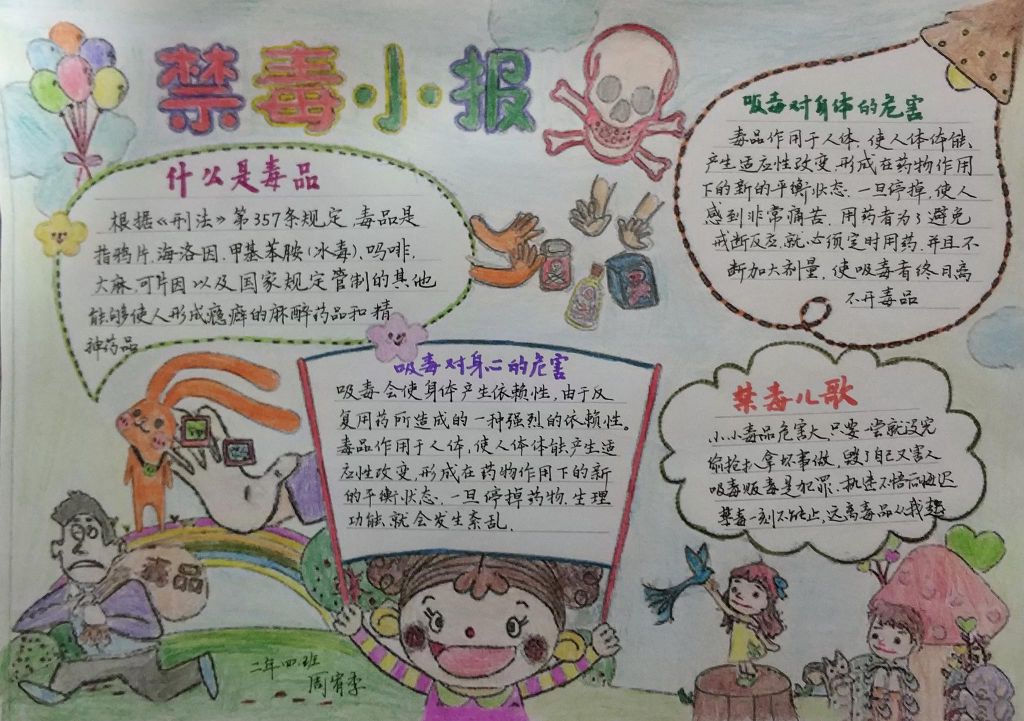 禁毒小报
什么是毒品
根据《刑法》第357条规定,毒品是
指鸦片,海洛因,甲基苯胺(冰毒)、吗啡,
大麻,可片因以及国家规定管制的其他
能够使人形成瘾癖的麻醉药品和精
神药品
吸毒对身体的危害
毒品作用于人体,使人体体能、
产生适应性改变,形成在药物作用
下的新的平衡状态.一旦停掉,使人
感到非常痛苦.用药者为了避免
戒断反应,就必须定时用药,并且不
断加大剂量,使吸毒者终日离
不开毒品
吸毒对身心的危害
吸毒会使身体产生依赖性,由于反
复用药所造成的一种强烈的依赖性。
毒品作用于人体,使人体体能产生适
应性改变,形成在药物作用下的新
的平衡状态.一旦停掉药物.生理
功能,就会发生紊乱.
禁毒儿歌
小小毒品危害大,只要一尝就没完
偷抢扒拿坏事做,毁了自己又害人
吸毒贩毒是犯罪,执迷不悟后悔迟
禁毒一刻不能止,远离毒品从我起
毒品
二年四班
周宥季